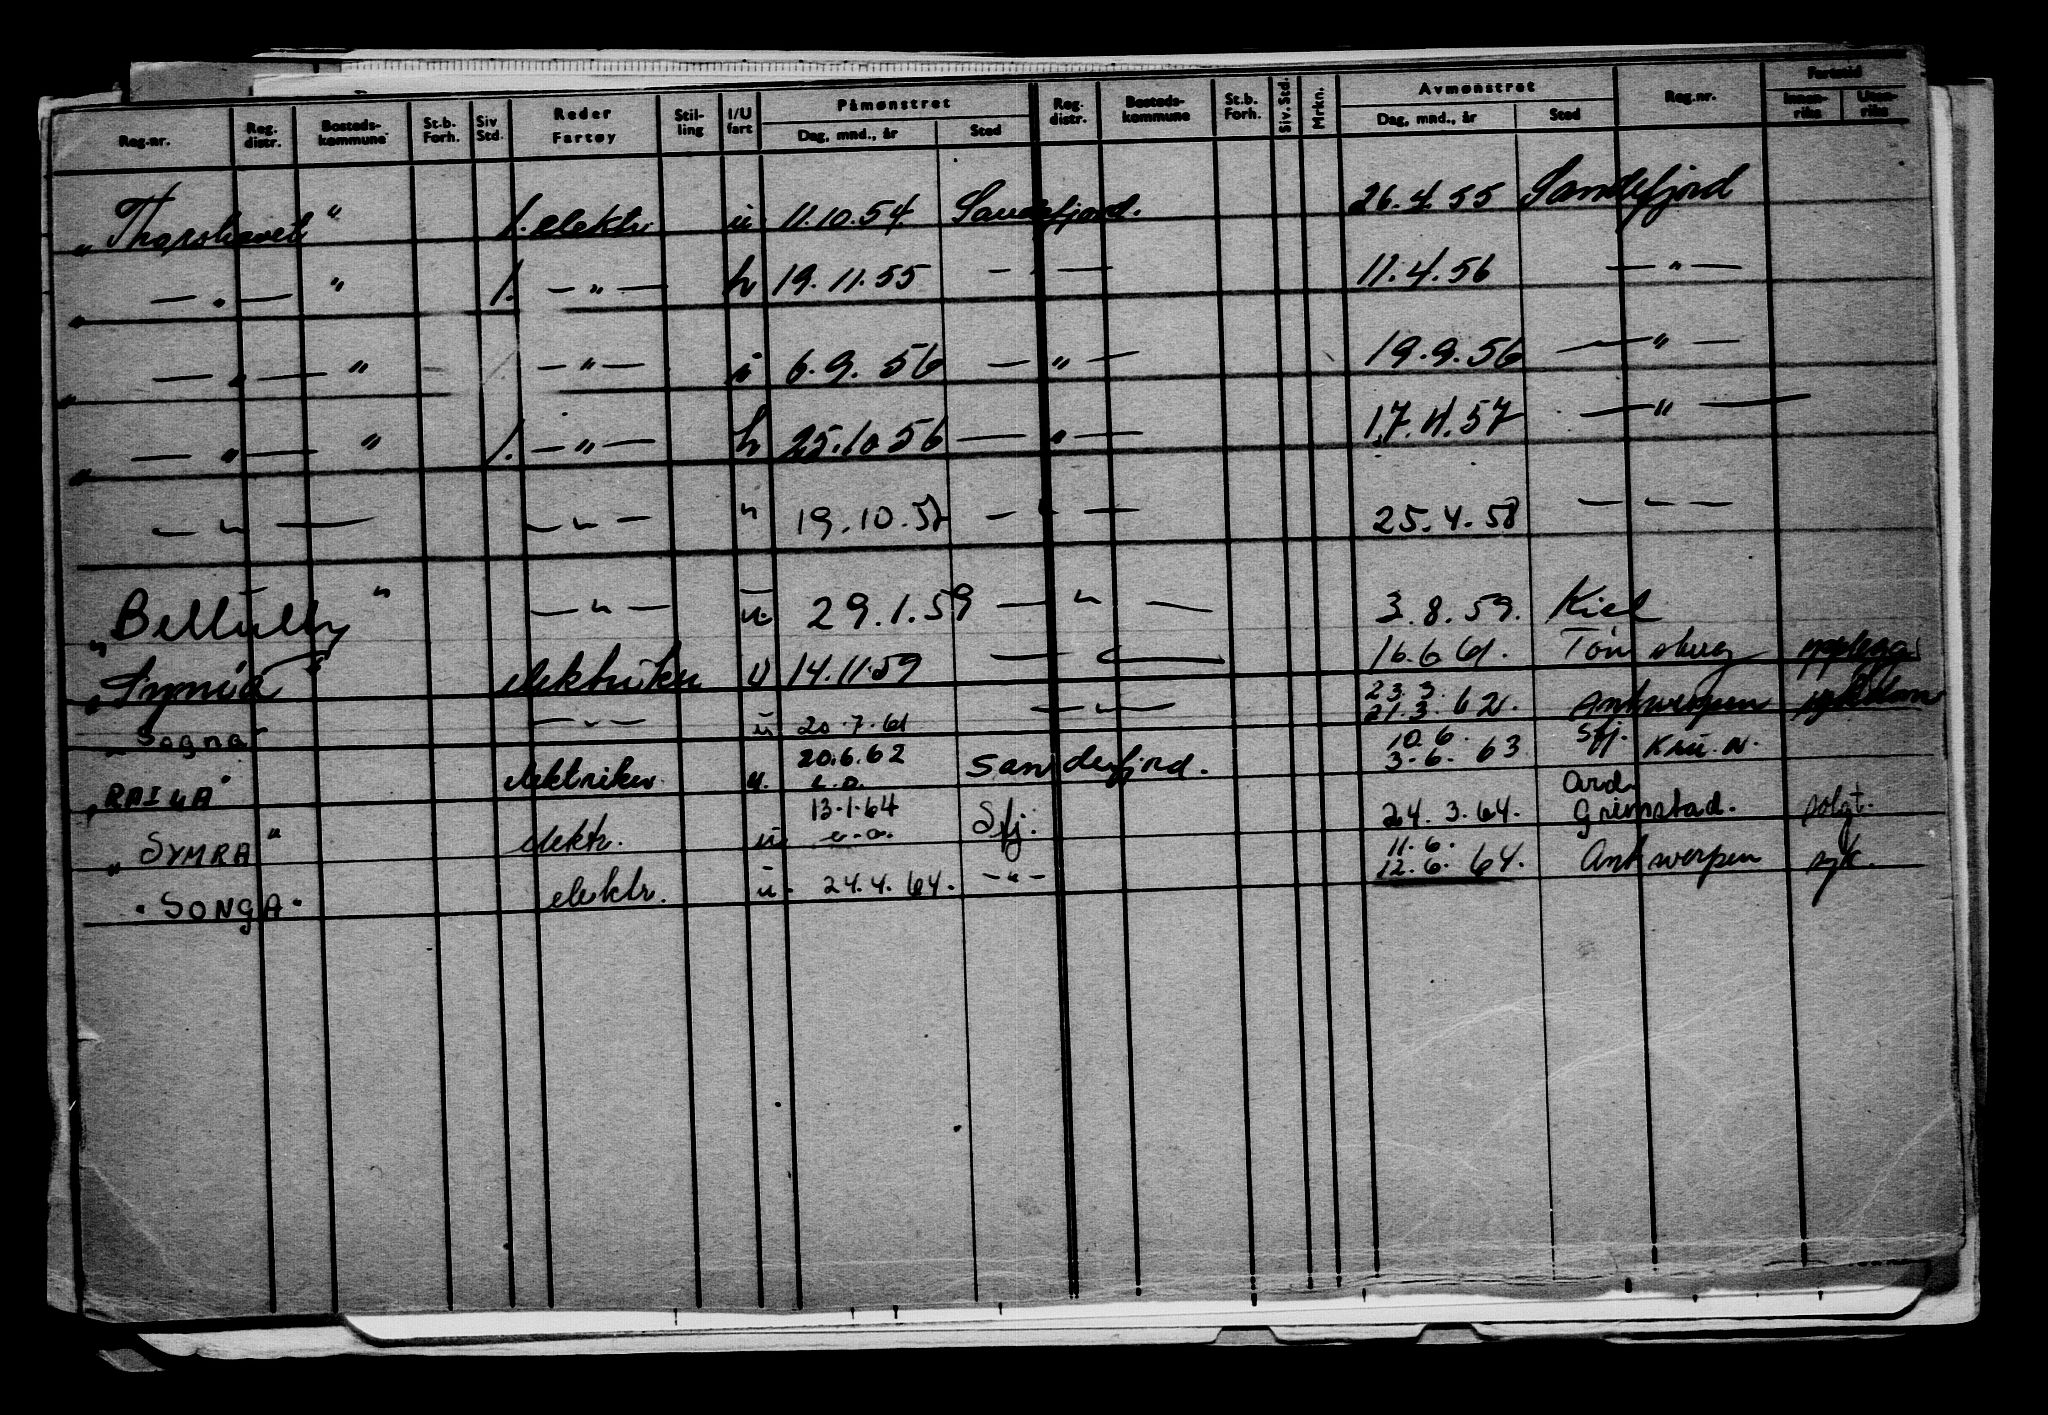 Reg.nr. Reg. distr. Bosteds-kommune St.b. Forh. Siv Std. Reder Fartøy Stil-ling I/U fart Påmønstret Dag, mnd., år Sted Reg. distr. Bosteds-kommune St.b. Forh. Siv. Std. Mrkn. Avmønstret Dag, mnd., år Sted Reg.nr. Fartstid Innen-riks Uten-riks
" Thorshavet " 1. elektr. u 11.10.54 Sandefjord. 26.4.55 Sandefjord
" — " — " 1. — " — h 19.11.55 — " — 11.4.56 — " —
" — " — " — " — i 6.9.56 — " — 19.9.56 — " —
" — " — " 1. — " — h 25.10.56 — " — 17.4.57 — " —
— " — — " — " 19.10.57 — " — 25.4.58 — " —
" " — " — u. 29.1.59 — " — 3.8.59. Kiel
" " elektriker u 14.11.59 — 16.6.61. Tønsberg opplegg
" Sogna " — " — u 20.7.61 — " — 23.3. 21.3.62. Antwerpen
" " elektriker u. 20.6.62 Sandefjord. 10.6. 3.6.63 Sfj.
" SYMRA " elektr. u 13.1.64 Sfj. 24.3.64. Grimstad. solgt.
" SONGA " elektr. u. 24.4.64. — " — 11.6. 12.6.64. Antwerpen syk.